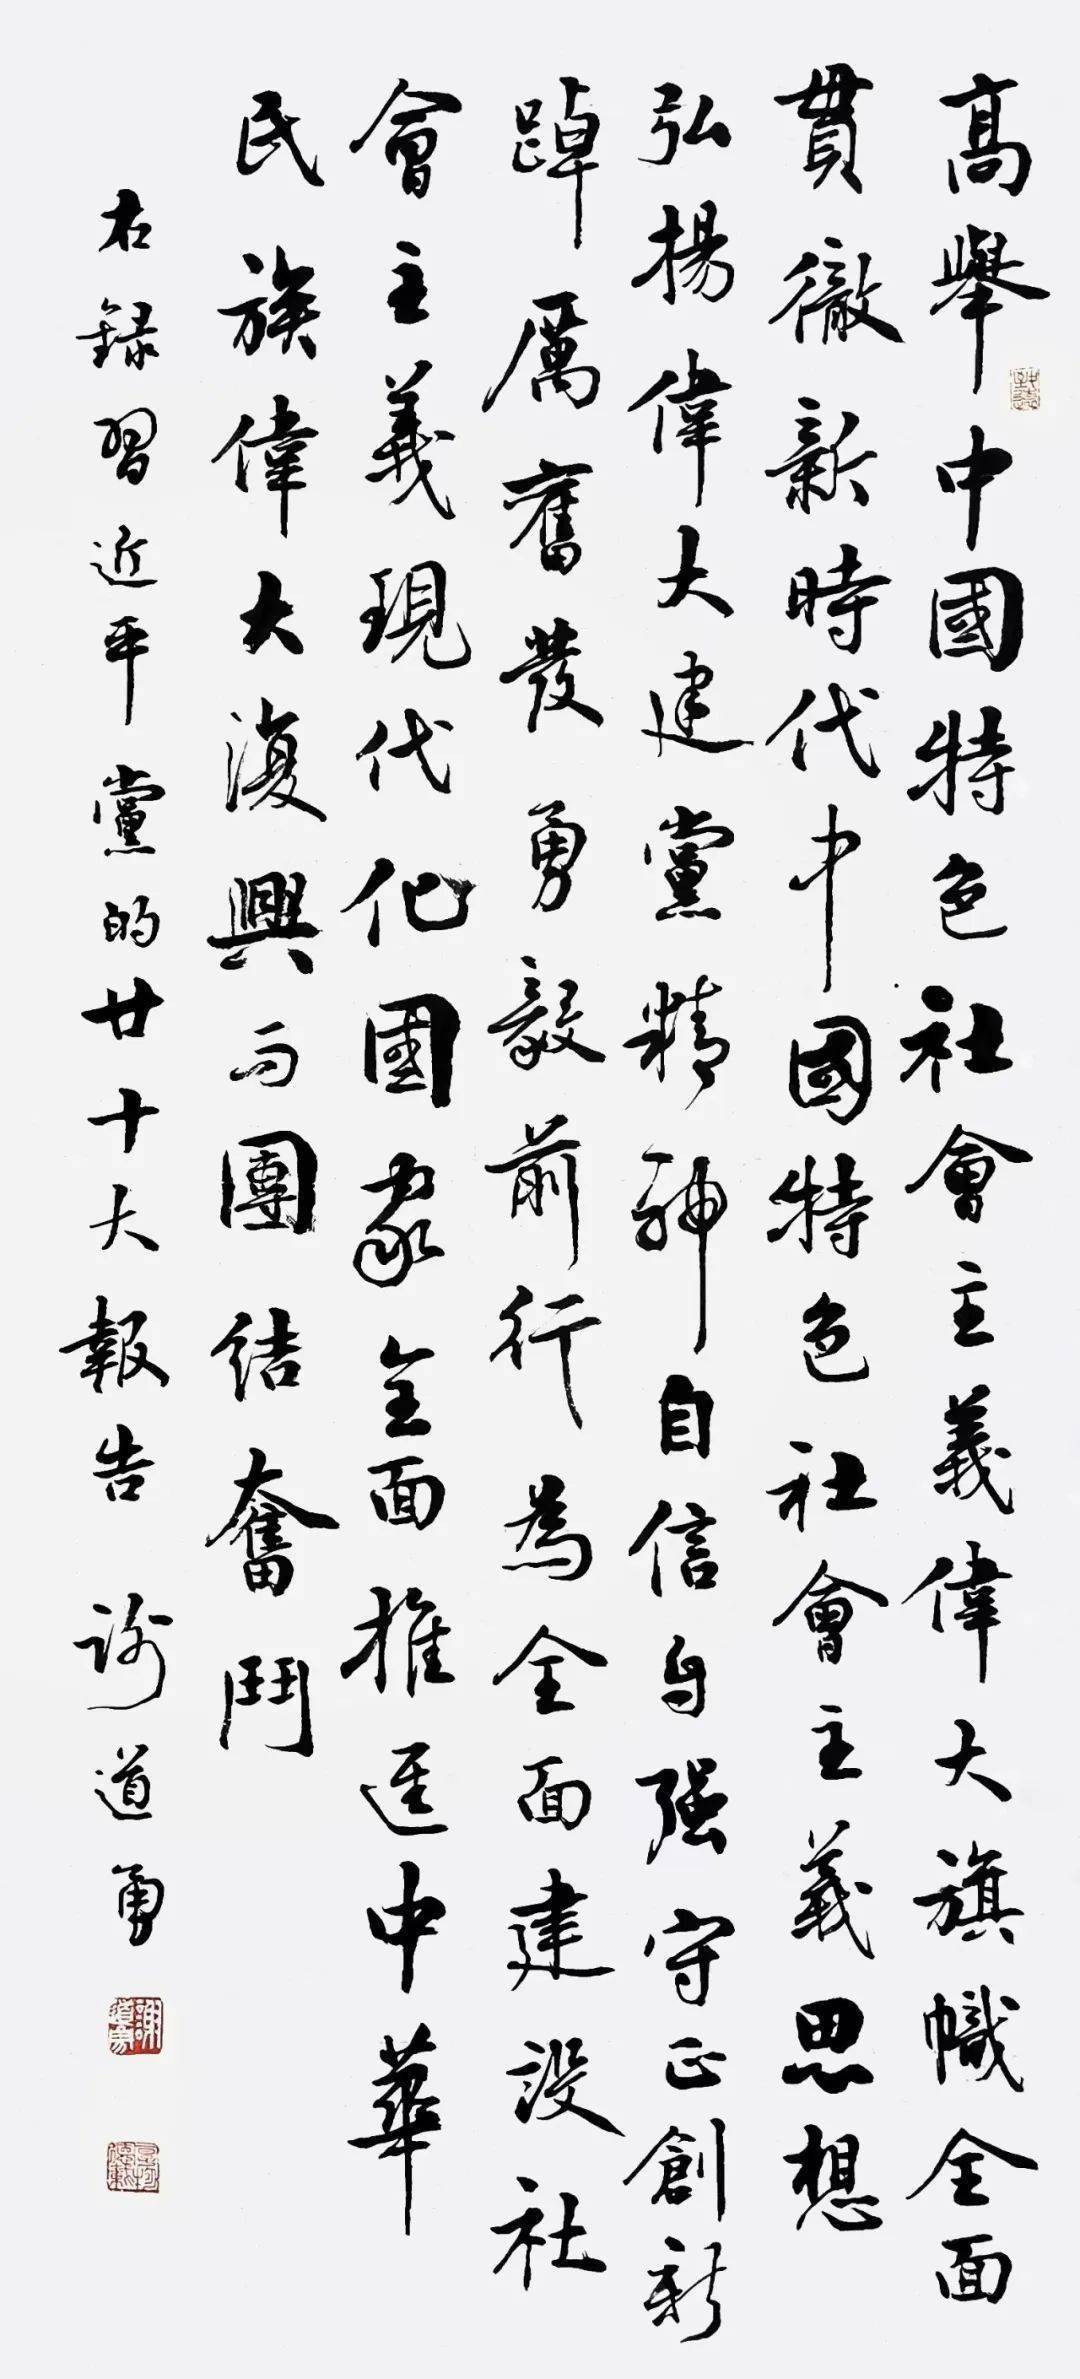 高舉中國特色社會主義偉大旗幟全面
貫徹新時代中國特色社會主義思想
弘揚偉大建黨精神自信自强守正創新
踔厲奮發勇毅前行為全面建設社
會主義現代化國家全面推進中華
民族偉大復興而團結奮鬥
右録習近平黨的廿十大報告 謝道勇
謝道勇